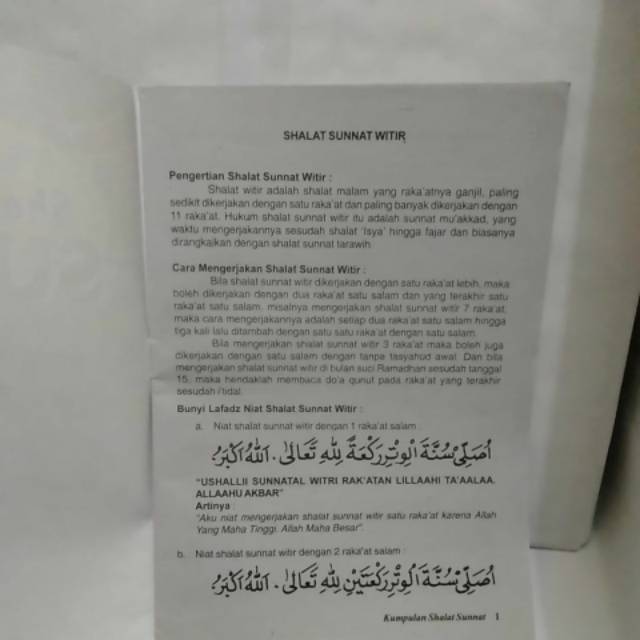 SHALAT SUNNAT WITIR
Pengertian Shalat Sunnat Witir :
Shalat witir adalah shalat malam yang raka'atnya ganjil, paling
sedikit dikerjakan dengan satu raka'at dan paling banyak dikerjakan dengan
11 raka'at. Hukum shalat sunnat witir itu adalah sunnat mu'akkad, yang
waktu mengerjakannya sesudah shalat 'Isya' hingga fajar dan biasanya
dirangkaikan dengan shalat sunnat tarawih.
Cara Mengerjakan Shalat Sunnat Witir :
Bila shalat sunnat witir dikerjakan dengan satu raka'at lebih, maka
boleh dikerjakan dengan dua raka'at satu salam dan yang terakhir satu
raka'at satu salam, misalnya mengerjakan shalat sunnat witir 7 raka'at,
maka cara mengerjakannya adalah setiap dua raka'at satu salam hingga
tiga kali lalu ditambah dengan satu satu raka'at dengan satu salam.
Bila mengerjakan shalat sunnat witir 3 raka'at maka boleh juga
dikerjakan dengan satu salam dengan tanpa tasyahud awal. Dan bila
mengerjakan shalat sunnat witir di bulan suci Ramadhan sesudah tanggal
15, maka hendaklah membaca do'a qunut pada raka'at yang terakhir
sesudah i'tidal.
Bunyi Lafadz Niat Shalat Sunnat Witir :
a. Niat shalat sunnat witir dengan 1 raka'at salam :
اُصَلِّيْ سُنَّةَ الْوِتْرِ رَكْعَةً لِلّٰهِ تَعَالٰى . اَللّٰهُ اَكْبَرُ
"USHALLII SUNNATAL WITRI RAK'ATAN LILLAAHI TA'AALAA.
ALLAAHU AKBAR"
Artinya :
"Aku niat mengerjakan shalat sunnat witir satu raka'at karena Allah
Yang Maha Tinggi. Allah Maha Besar".
b. Niat shalat sunnat witir dengan 2 raka'at salam :
اُصَلِّيْ سُنَّةَ الْوِتْرِ رَكْعَتَيْنِ لِلّٰهِ تَعَالٰى . اَللّٰهُ اَكْبَرُ
Kumpulan Shalat Sunnat 1